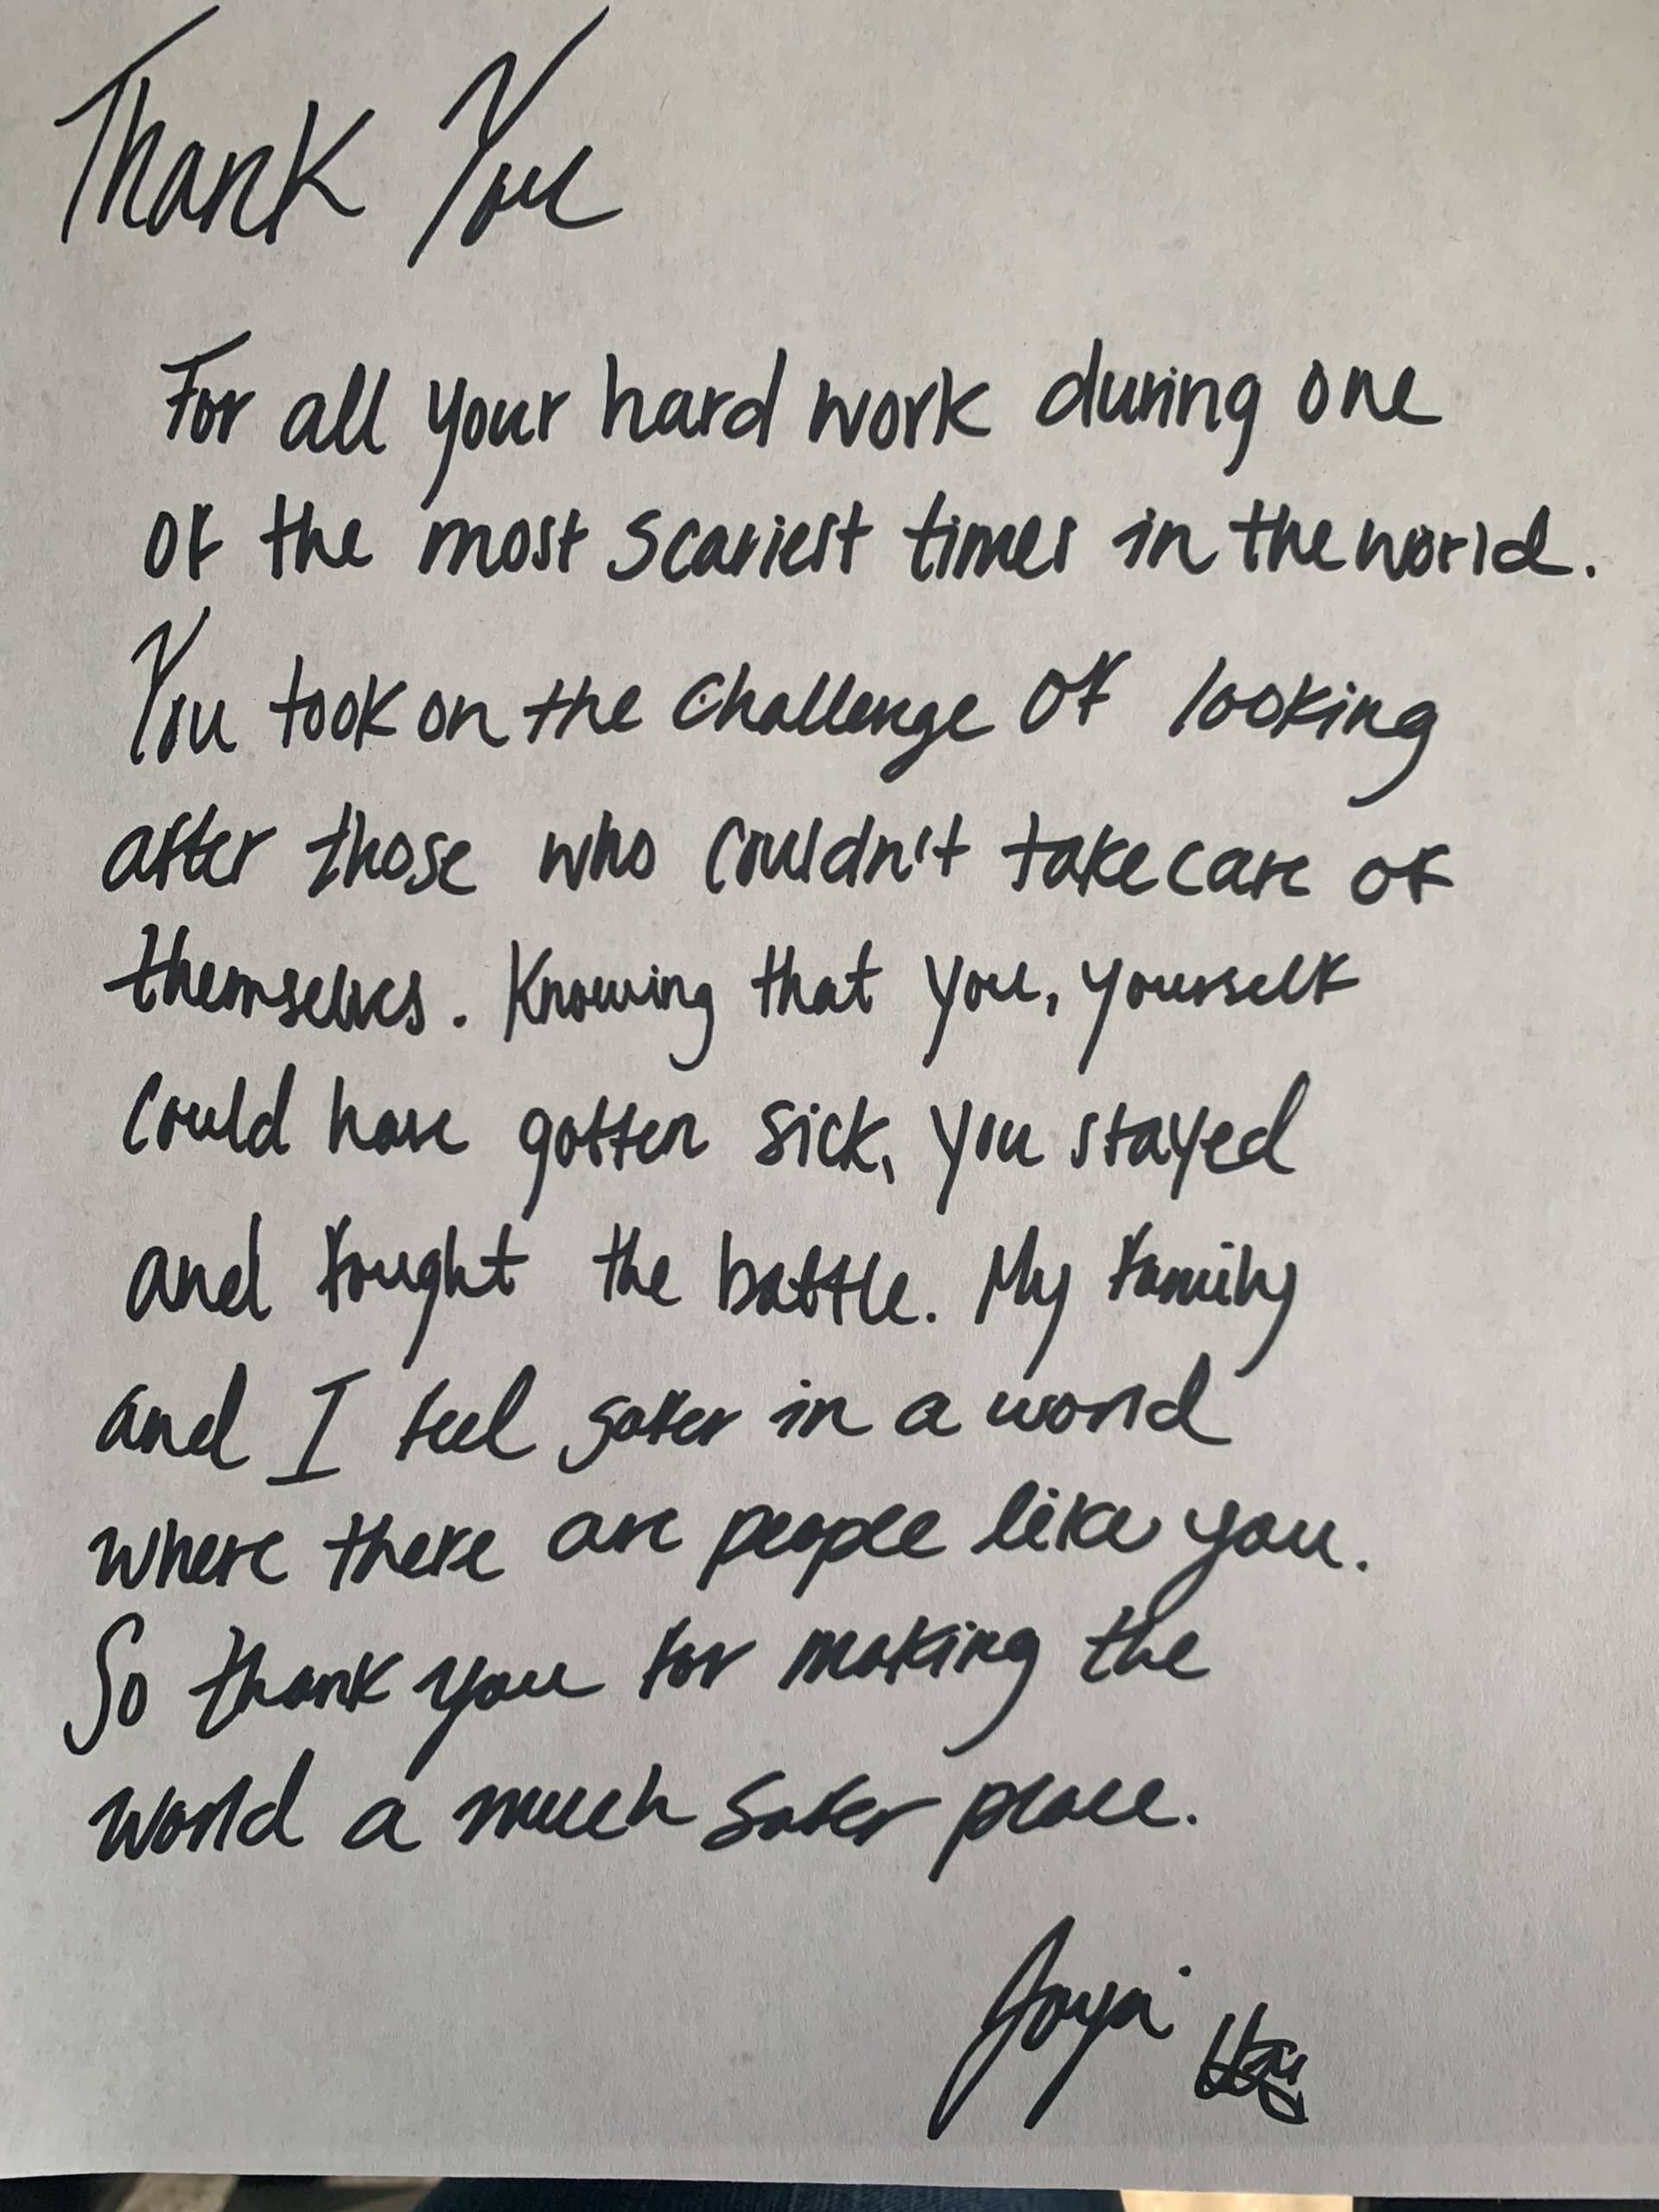 Thank You
For all your hard work during one
of the most scariest times in the world.
You took on the challenge of looking
after those who couldn't take care of
themselves. Knowing that you, yourself
could have gotten sick, you stayed
and fought the battle. My family
and I feel safer in a world
where there are people like you.
So thank you for making the
world a much safer place.